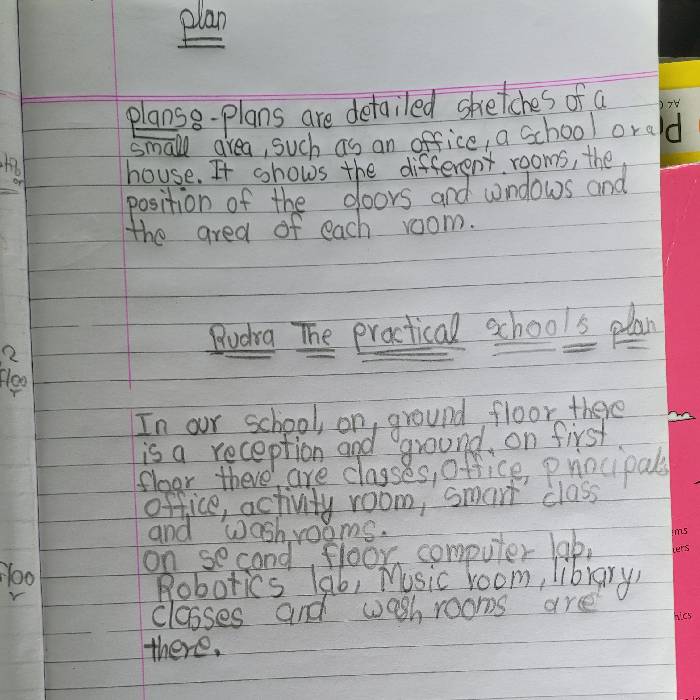 plan
plans:-Plans are detailed sketches of a
small area, such as an office, a school or a
house. It shows the different rooms, the
position of the doors and windows and
the area of each room.
Rudra The practical school's plan
In our school, on, ground floor there
is a reception and ground. on first
floor there are classes, office, principals
office, activity room, smart class
and washrooms.
on second floor computer lab,
Robotics lab, Music room, library,
classes and washrooms are
there.